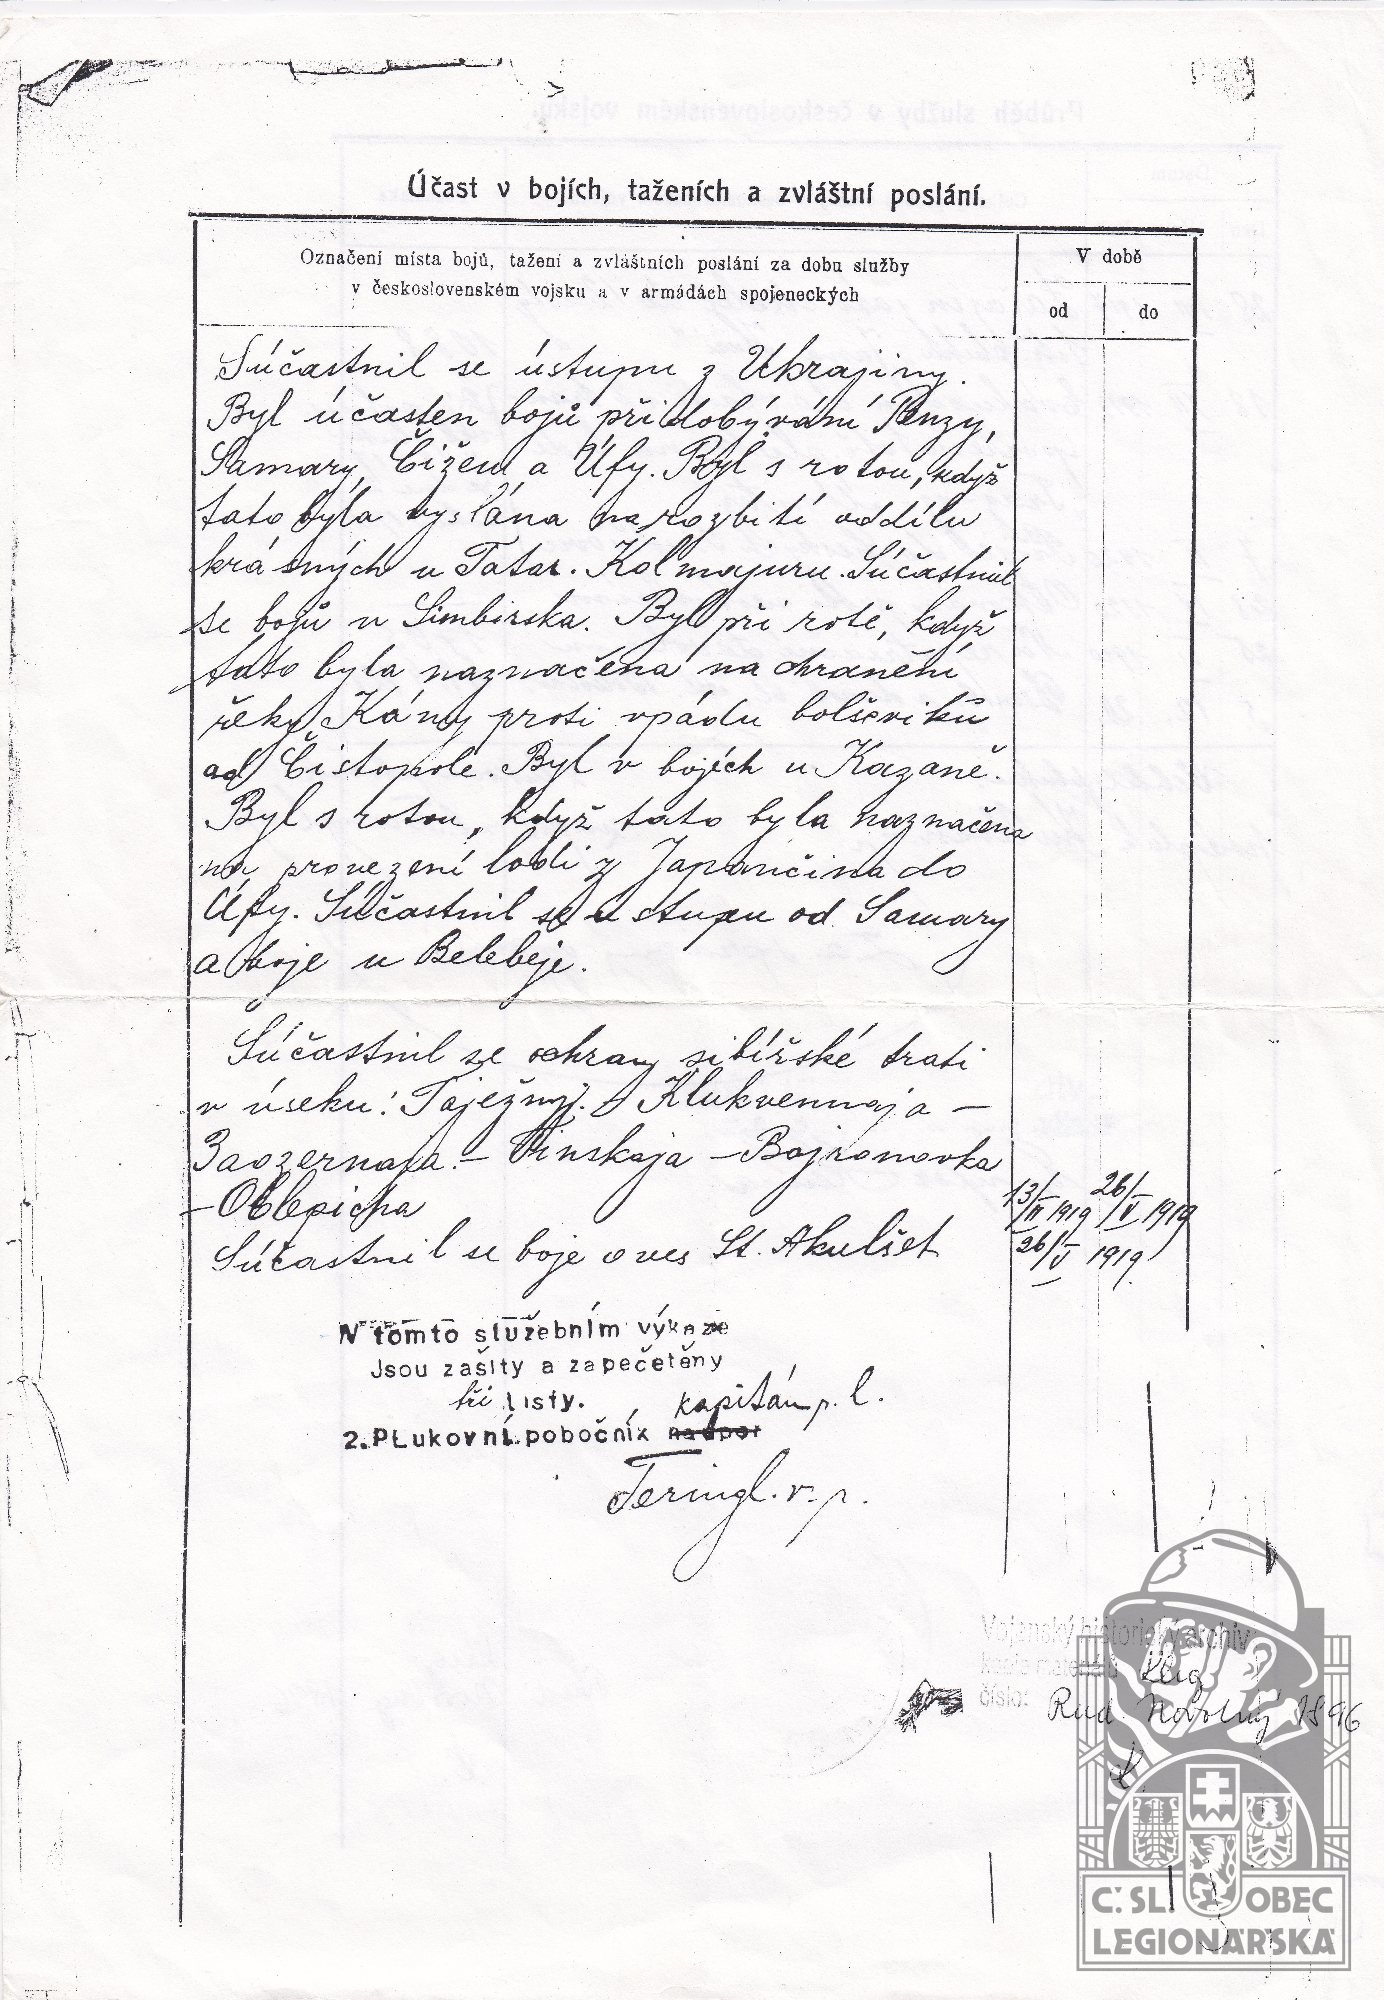 Účast v bojích, taženích a zvláštní poslání.
Označení místa bojů, tažení a zvláštních poslání za dobu služby
v československém vojsku a v armádách spojeneckých
V době
od
do
Súčastnil se ústupu z Ukrajiny.
Byl účasten bojů při dobývání Penzy,
Samary, a Úfy. Byl s rotou, když
tato byla vyslána na rozbití oddílu
krásných u Tatar. Kolmajuru. Súčastnil
se bojů u Simbirska. Byl při rotě, když
tato byla naznačena na chranění
řeky Kámy proti vpádu bolševiků
od Čistopole. Byl v bojích u Kazaně.
Byl s rotou, když tato byla naznačena
na provezení lodí z Japančina do
Úfy. Súčastnil se ústupu od Samary
a boje u Belebeje.
Súčastnil se ochrany sibířské trati
v úseku: Taježnyj - Klukvennaja -
Zaozernaja - Tinskaja - Bojronovka
- Oblepicha
13/III 1919 26/V 1919
Súčastnil se boje o ves St. Akulšet
26/V 1919.
V tomto služebním výkaze
Jsou zašity a zapečetěny
tři Listy.
kapitán p. l.
2. PLukovní pobočník nadpor
Teringl. v. r.
Vojenský historický archiv
kopie materiálů
číslo: Rud. Novotný 1896
Č.SL. OBEC
LEGIONÁŘSKÁ